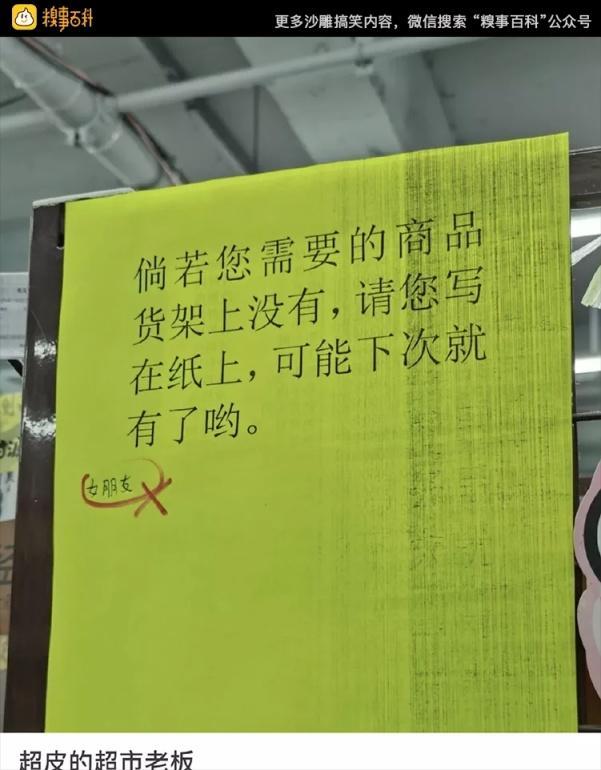 糗事百科
更多沙雕搞笑内容，微信搜索“糗事百科”公众号
倘若您需要的商品
货架上没有，请您写
在纸上，可能下次就
有了哟。
女朋友
超皮的超市老板